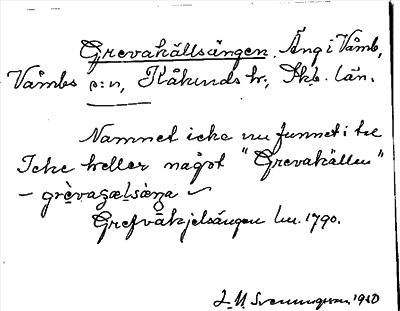 Grevakällsängen. Äng i Våmb,
Våmbs s:n, Kåkinds hr, Skb. län.
Namnet icke nu funnet i bc
Icke heller något "Grevakällan"
– grèvaçælsæŋa
Grefväkjelsängen lm. 1790.
J. M. Svenningson 1910